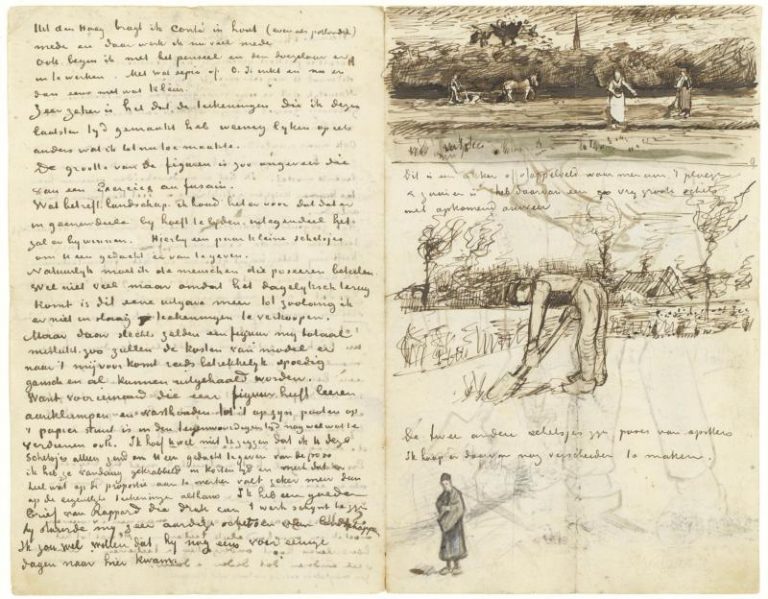 Uit den Haag bragt ik Conté in hout (even als potlooden)
mede en daar werk ik nu veel mede
Ook begin ik met het penseel en den doezelaar er
in te werken. Met wat sepia of O.I. inkt en nu en
dan eens met wat kleur.
Zeer zeker is het dat de teekeningen die ik dezen
laatsten tijd gemaakt heb weinig lijken op iets
anders wat ik tot nu toe maakte.
De grootte van de figuren is zoo ongeveer die
van een Exercice au fusain.
Wat betreft landschap. ik houd het er voor dat dat er
in geenendeele bij hoeft te lijden. integendeel het
zal er bij winnen. Hierbij een paar kleine schetsjes
om U een gedacht er van te geven.
Natuurlijk moet ik de menschen die poseeren betalen.
Wel niet veel maar omdat het dagelijksch terug
komt is dit eene uitgave meer tot zoolang ik
er niet in slaag teekeningen te verkoopen.
Maar daar slechts zelden een figuur mij totaal
mislukt, zoo zullen de kosten van model er
naar 't mij voorkomt reeds betrekkelijk spoedig
gansch en al kunnen uitgehaald worden.
Want voor iemand die een figuur heeft leeren
aanklampen en vasthouden tot 't op zijn pooten op
't papier staat is in den tegenwoordigen tijd nog wel wat te
verdienen ook. Ik hoef U wel niet te zeggen dat ik U deze
schetsjes alleen zend om U een gedacht te geven van de pose
ik heb ze vandaag gekrabbeld in korten tijd en merk dat er
heel wat op de proportie aan te merken valt zeker meer dan
op de eigentlijke teekeningen althans. Ik heb een goeden
brief van Rappard die druk aan 't werk schijnt te zijn
hij stuurde mij zeer aardige schetsen van landschappen
Ik zou wel willen dat hij nog eens voor eenige
dagen naar hier kwam.
Dit is een akker of stoppelveld waar men aan 't ploegen
& zaaien is heb daarvan een vrij groote schets
met opkomend onweer
De twee andere schetsjes zijn poses van spitters
Ik hoop er daarvan nog verscheiden te maken.